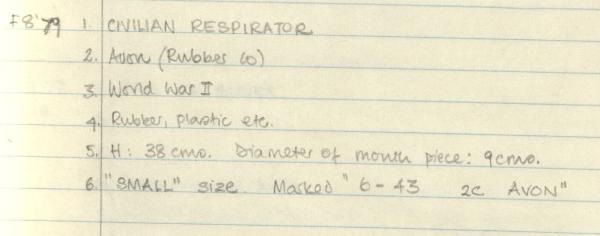 F8'79 1. CIVILIAN RESPIRATOR
2. Avon (Rubber Co)
3. World War II
4. Rubber, plastic etc.
5. H: 38 cms. Diameter of mouth piece: 9cms.
6. "SMALL" size. Marked "6-43 2C AVON"